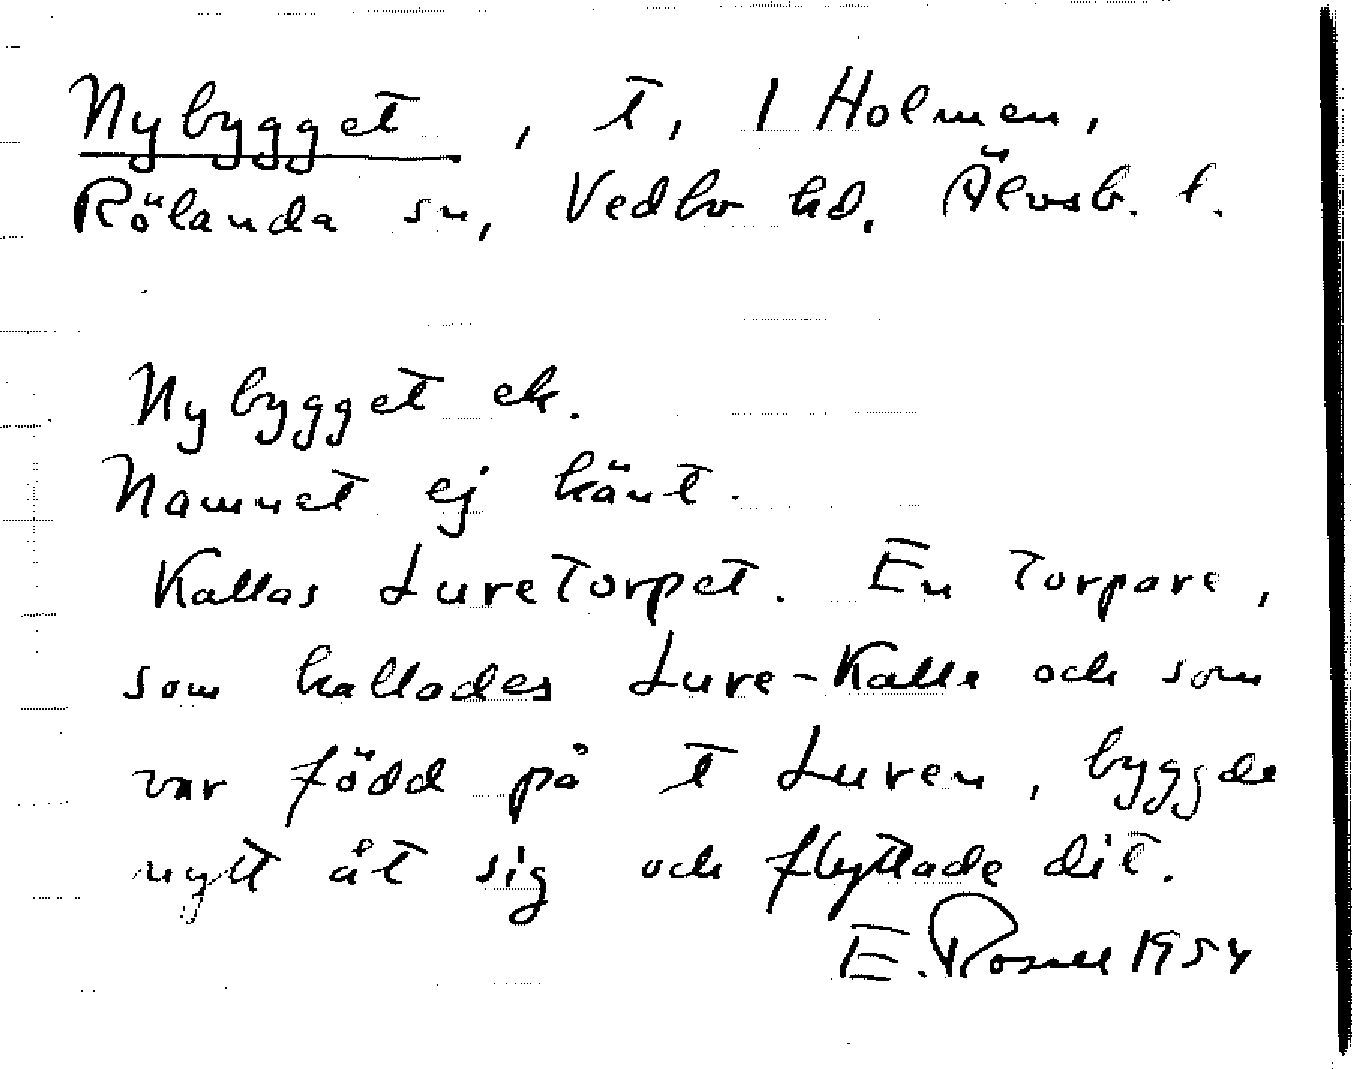 Nybygget, t, 1 Holmen,
Rölanda sn, Vedbo hd. Älvsb. l.
Nybygget ek.
Namnet ej känt.
Kallas Luretorpet. En torpare,
som kallades Lure-Kalle och som
var född på t Luren, byggde
nytt åt sig och flyttade dit.
E. Rosell 1954